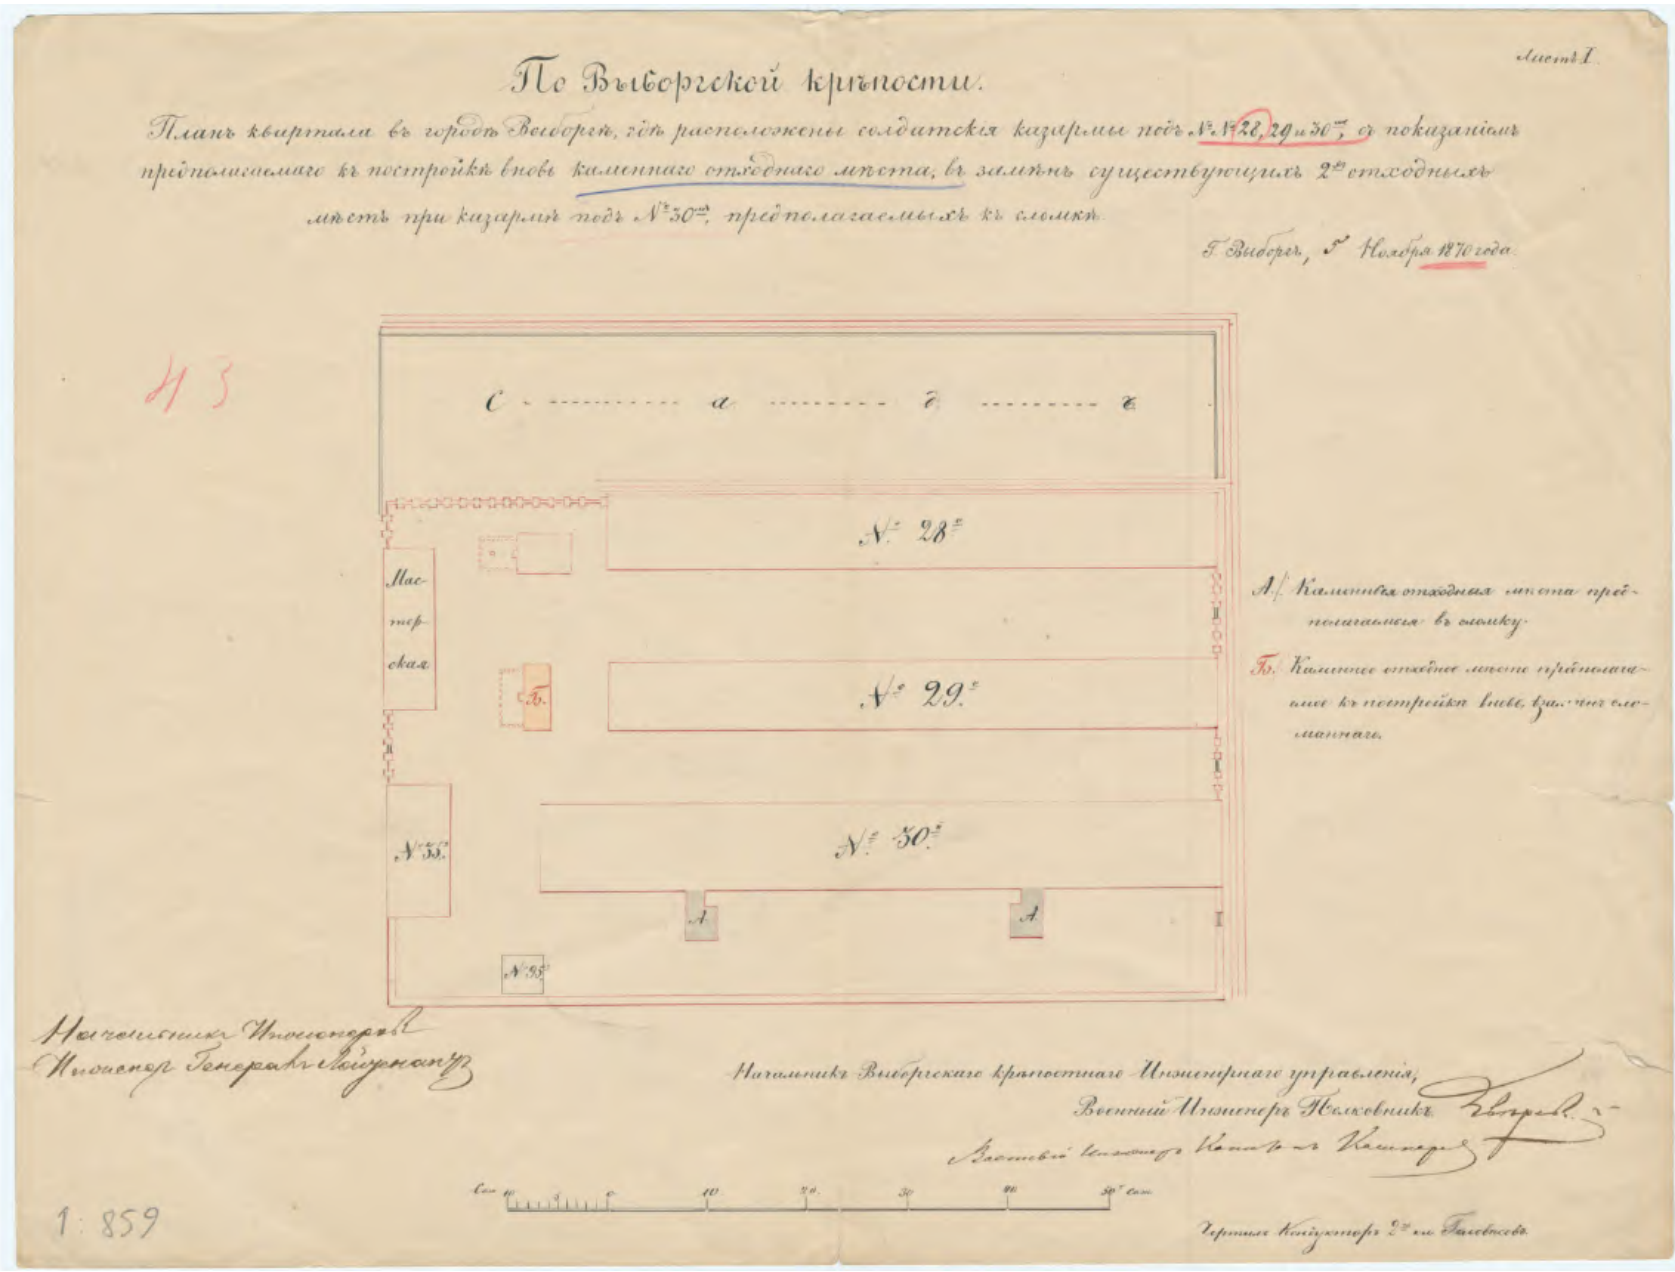 Листъ I.
По Выборгской крѣпости.
Планъ квартала въ городѣ Выборгѣ, гдѣ расположены солдатскія казармы подъ №№ 28, 29 и 30мъ, съ показаніемъ
предполагаемаго къ постройкѣ вновь каменнаго отходнаго мѣста, въ замѣнъ существующихъ 2хъ отходныхъ
мѣстъ при казармѣ подъ № 30мъ, предполагаемыхъ къ сломкѣ.
Г. Выборгъ, 5 Ноября 1870 года.
43
С а д ъ
№ 28й
Мас-
тер-
ская
№ 29й
Б.
№ 30й
№ 35й
А
А
№ 95й
А/ Каменныя отходныя мѣста пред-
полагаемыя въ сломку.
Б/ Каменное отходное мѣсто предполага-
емое къ постройкѣ вновь, взамѣнъ сло-
маннаго.
Начальникъ Инженеровъ
Инженеръ Генералъ Лейтенантъ
Начальникъ Выборгскаго крѣпостнаго Инженернаго управленія,
Военный Инженеръ Полковникъ
Военный Инженеръ Капитанъ
Саж 10 5 0 10 20 30 40 50 саж.
1:859
Чертилъ Кондукторъ 2го кл.